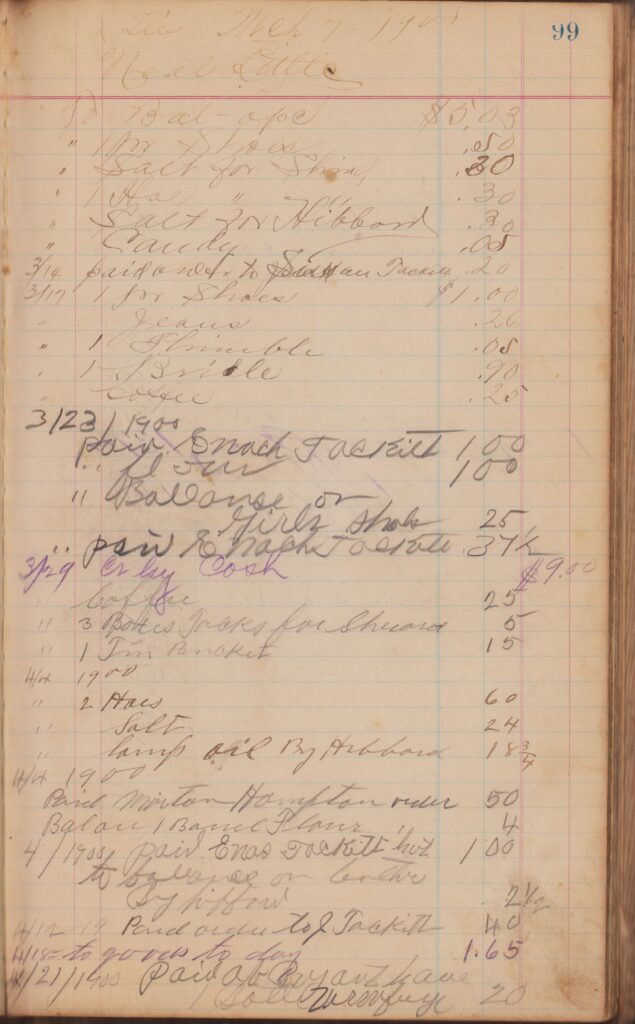 99
Mch 7 1900
Little
Bal - ope $5.03
" 1 pr Shoes .50
" Salt for .30
" 1 Hoe " .30
" Salt for Hibbard .30
" Candy .05
3/14 paid order to Tackett .20
3/17 1 pr Shoes $1.00
" Jeans .26
" 1 Thimble .05
" 1 Bridle .90
" Coffee .25
3/23/1900
paid Enoch Tackitt 100
" flour 100
" Ballance on
Girls shoes 25
" paid Enoch Tackett 37½
3/29 Cr by Cash $9.00
" Coffee 25
" 3 Boxes Tacks for 5
" 1 Tin Bucket 15
4/4 1900
" 2 Hoes 60
" Salt 24
" lamp oil By Hibbard 18¾
4/4 1900
Paid Morton Hampton order 50
1 Barrel Flour " 4
4/1900 paid Enos Tackitt 100
to balance on
By 2½
4/12 - 19 Paid order to J Tackitt 40
4/18 = to goods to day 1.65
4/21/1900 paid
20